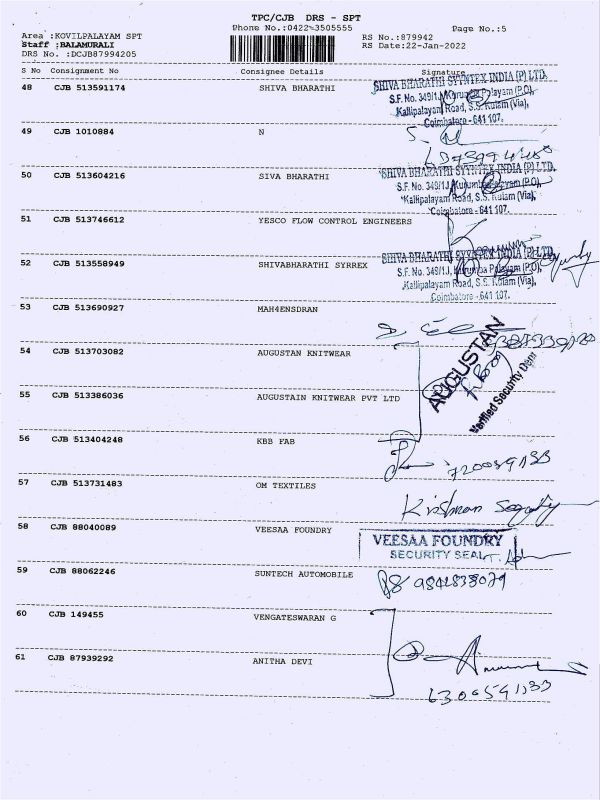 TPC/CJB DRS - SPT
Phone No.:0422-3505555 Page No.:5
Area :KOVILPALAYAM SPT RS No.:879942
Staff :BALAMURALI RS Date:22-Jan-2022
DRS No. :DCJB87994205
S No Consignment No Consignee Details Signature
48 CJB 513591174 SHIVA BHARATHI
SHIVA BHARATHI SYYNTEX INDIA (P) LTD,
S.F. No. 349/1J, Kurumba Palayam (P.O),
Kallipalayam Road, S.S. Kulam (Via),
Coimbatore - 641 107.
49 CJB 1010884 N
50 CJB 513604216 SIVA BHARATHI
SHIVA BHARATHI SYYNTEX INDIA (P) LTD,
S.F. No. 349/1J, Kurumba Palayam (P.O),
Kallipalayam Road, S.S. Kulam (Via),
Coimbatore - 641 107.
51 CJB 513746612 YESCO FLOW CONTROL ENGINEERS
52 CJB 513558949 SHIVABHARATHI SYRREX
SHIVA BHARATHI SYYNTEX INDIA (P) LTD,
S.F. No. 349/1J, Kurumba Palayam (P.O),
Kallipalayam Road, S.S. Kulam (Via),
Coimbatore - 641 107.
53 CJB 513690927 MAH4ENSDRAN
54 CJB 513703082 AUGUSTAN KNITWEAR
AUGUSTAN
Verified Security Dept
55 CJB 513386036 AUGUSTAIN KNITWEAR PVT LTD
56 CJB 513404248 KBB FAB
57 CJB 513731483 OM TEXTILES
Krishnan
58 CJB 88040089 VEESAA FOUNDRY
VEESAA FOUNDRY
SECURITY SEAL
59 CJB 88062246 SUNTECH AUTOMOBILE
9842838079
60 CJB 149455 VENGATESWARAN G
61 CJB 87939292 ANITHA DEVI